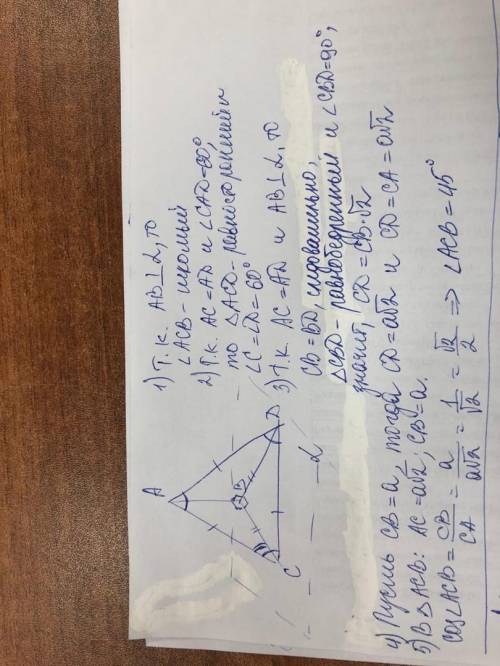 1) Т.к. AB⊥α, то
∠ACB - искомый
2) Т.к. AC=AD и ∠CAD=60°,
то △ACD - равносторонний и
∠C=∠D=60°
3) Т.к. AC=AD и AB⊥α, то
CB=BD, следовательно,
△CBD - равнобедренный и ∠CBD=90°,
значит, CD=CB·√2
4) Пусть CB=a, тогда CD=a√2 и CD=CA=a√2
5) В △ACB: AC=a√2; CB=a.
cos∠ACB = CB/CA = a/a√2 = 1/√2 = √2/2 ⇒ ∠ACB=45°
A
B
C
D
α